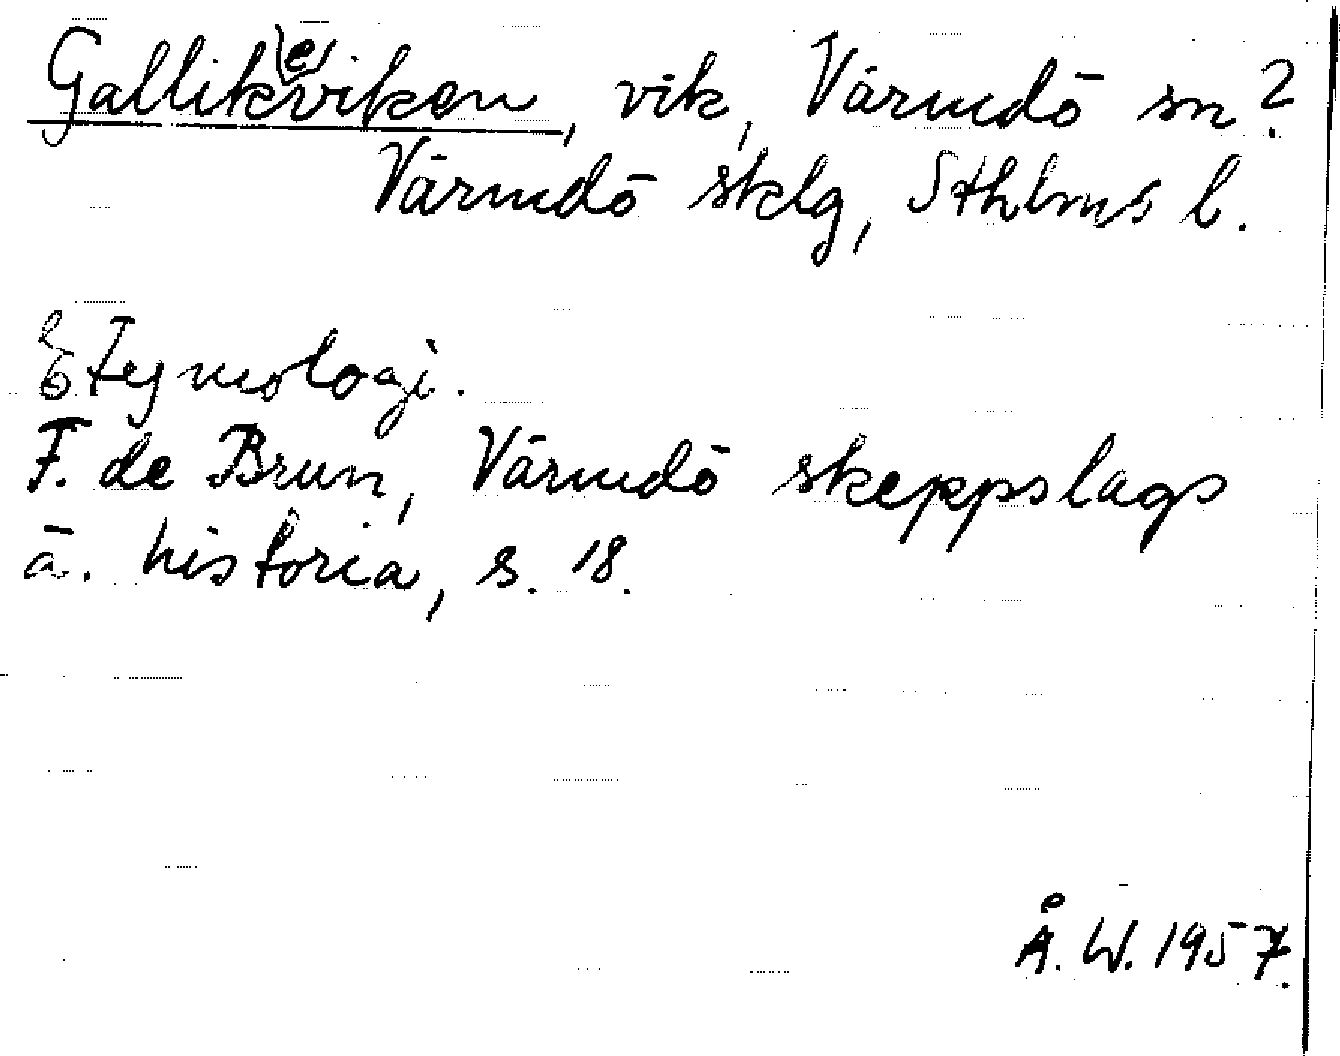 Gallik(e)viken, vik, Värmdö sn?
Värmdö sklg, Sthlms l.
Etymologi.
F. de Brun, Värmdö skeppslags
ä. historia, s. 18.
Å. W. 1957.